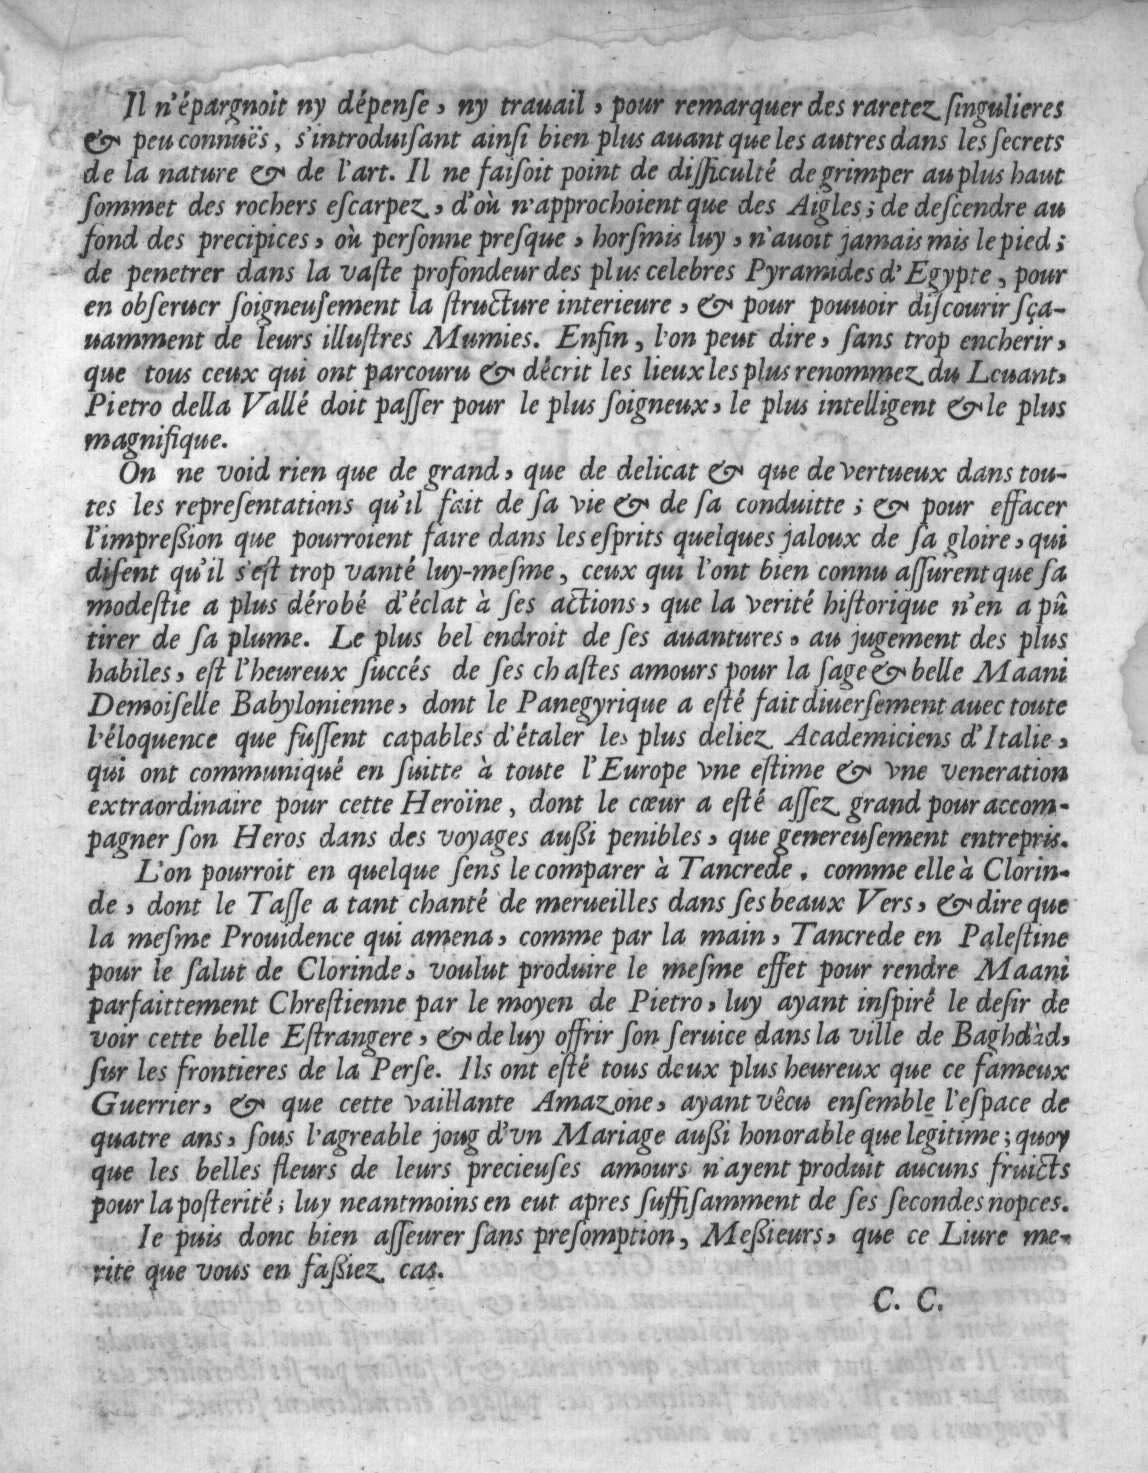 Il n'épargnoit ny dépenſe, ny trauail, pour remarquer des raretez ſingulieres
& peu connuës, s'introduiſant ainſi bien plus auant que les autres dans les ſecrets
de la nature & de l'art. Il ne faiſoit point de difficulté de grimper au plus haut
ſommet des rochers eſcarpez, d'où n'approchoient que des Aigles; de deſcendre au
fond des precipices, où perſonne preſque, horſmis luy, n'auoit jamais mis le pied;
de penetrer dans la vaſte profondeur des plus celebres Pyramides d'Egypte, pour
en obſeruer ſoigneuſement la ſtructure interieure, & pour pouuoir diſcourir ſça-
uamment de leurs illuſtres Mumies. Enfin, l'on peut dire, ſans trop encherir,
que tous ceux qui ont parcouru & décrit les lieux les plus renommez du Leuant,
Pietro della Vallé doit paſſer pour le plus ſoigneux, le plus intelligent & le plus
magnifique.
On ne void rien que de grand, que de delicat & que de vertueux dans tou-
tes les repreſentations qu'il fait de ſa vie & de ſa conduitte; & pour effacer
l'impreßion que pourroient faire dans les eſprits quelques jaloux de ſa gloire, qui
diſent qu'il s'eſt trop vanté luy-meſme, ceux qui l'ont bien connu aſſurent que ſa
modeſtie a plus dérobé d'éclat à ſes actions, que la verité hiſtorique n'en a pû
tirer de ſa plume. Le plus bel endroit de ſes auantures, au jugement des plus
habiles, eſt l'heureux ſuccés de ſes chaſtes amours pour la ſage & belle Maani
Demoiſelle Babylonienne, dont le Panegyrique a eſté fait diuerſement auec toute
l'éloquence que fuſſent capables d'étaler les plus deliez Academiciens d'Italie,
qui ont communiqué en ſuitte à toute l'Europe vne eſtime & vne veneration
extraordinaire pour cette Heroïne, dont le cœur a eſté aſſez grand pour accom-
pagner ſon Heros dans des voyages außi penibles, que genereuſement entrepris.
L'on pourroit en quelque ſens le comparer à Tancrede, comme elle à Clorin-
de, dont le Taſſe a tant chanté de merueilles dans ſes beaux Vers, & dire que
la meſme Prouidence qui amena, comme par la main, Tancrede en Paleſtine
pour le ſalut de Clorinde, voulut produire le meſme effet pour rendre Maani
parfaittement Chreſtienne par le moyen de Pietro, luy ayant inſpiré le deſir de
voir cette belle Eſtrangere, & de luy offrir ſon ſeruice dans la ville de Baghdàd,
ſur les frontieres de la Perſe. Ils ont eſté tous deux plus heureux que ce fameux
Guerrier, & que cette vaillante Amazone, ayant vêcu enſemble l'eſpace de
quatre ans, ſous l'agreable joug d'vn Mariage außi honorable que legitime; quoy
que les belles fleurs de leurs precieuſes amours n'ayent produit aucuns fruicts
pour la poſterité; luy neantmoins en eut apres ſuffiſamment de ſes ſecondes nopces.
Ie puis donc bien aſſeurer ſans preſomption, Meßieurs, que ce Liure me-
rite que vous en faßiez cas.
C. C.